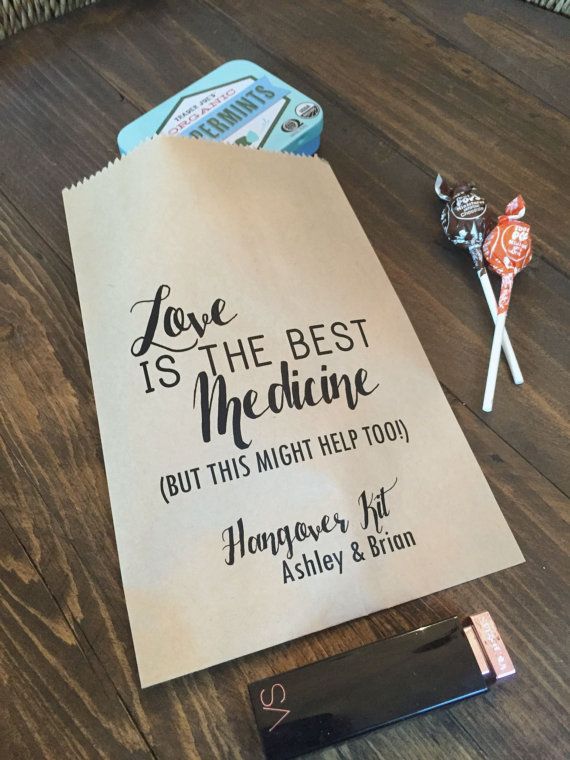 TRADER JOE'S
ORGANIC
PERMINTS
Love
IS THE BEST
Medicine
(BUT THIS MIGHT HELP TOO!)
Hangover Kit
Ashley & Brian
VS